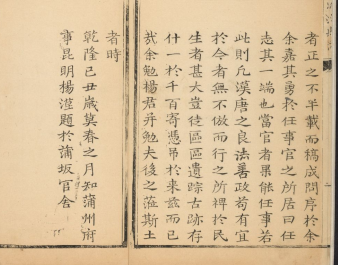 者正之不半載而稿成問序於余
余嘉其勇於任事官之所居曰任
志其一端也當官者果能任事若
此則凡漢唐之良法善政苟有宜
於今者無不倣而行之所裨於民
生者甚大豈徒區區遺踪古跡存
什一於千百寄憑吊於來茲而已
哉余勉楊君并勉夫後之蒞斯土
者時
乾隆己丑歲莫春之月知蒲州府
事昆明楊瀅題於蒲坂官舍